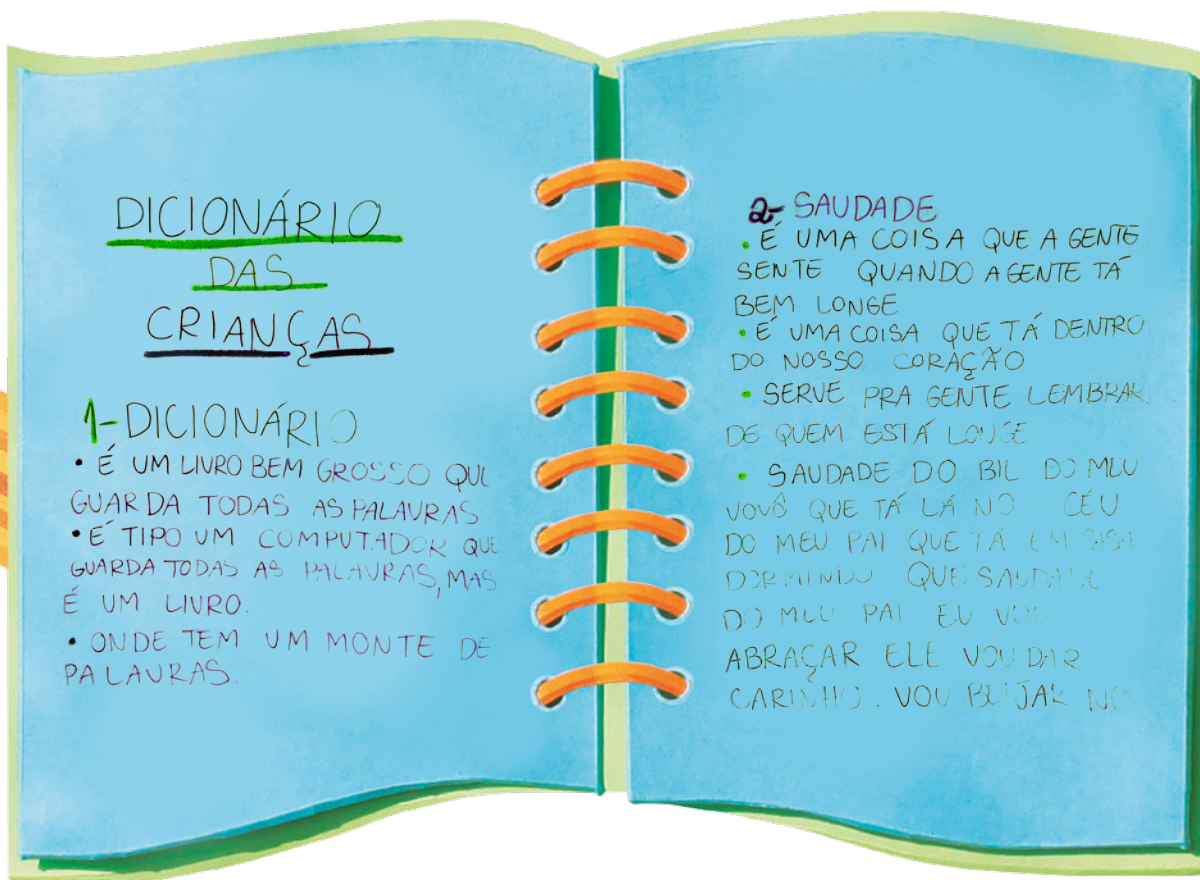 DICIONÁRIO
DAS
CRIANÇAS
1-DICIONÁRIO
• É UM LIVRO BEM GROSSO QUE
GUARDA TODAS AS PALAVRAS
• É TIPO UM COMPUTADOR QUE
GUARDA TODAS AS PALAVRAS, MAS
É UM LIVRO.
• ONDE TEM UM MONTE DE
PALAVRAS.
2- SAUDADE
• É UMA COISA QUE A GENTE
SENTE QUANDO A GENTE TÁ
BEM LONGE
• É UMA COISA QUE TÁ DENTRO
DO NOSSO CORAÇÃO
• SERVE PRA GENTE LEMBRAR
DE QUEM ESTÁ LONGE
• SAUDADE DO BIL DO MEU
VOVÔ QUE TÁ LÁ NO CÉU
DO MEU PAI QUE TÁ EM CASA
DORMINDO QUE SAUDADE
DO MEU PAI EU VOU
ABRAÇAR ELE VOU DAR
CARINHO. VOU BEIJAR NO